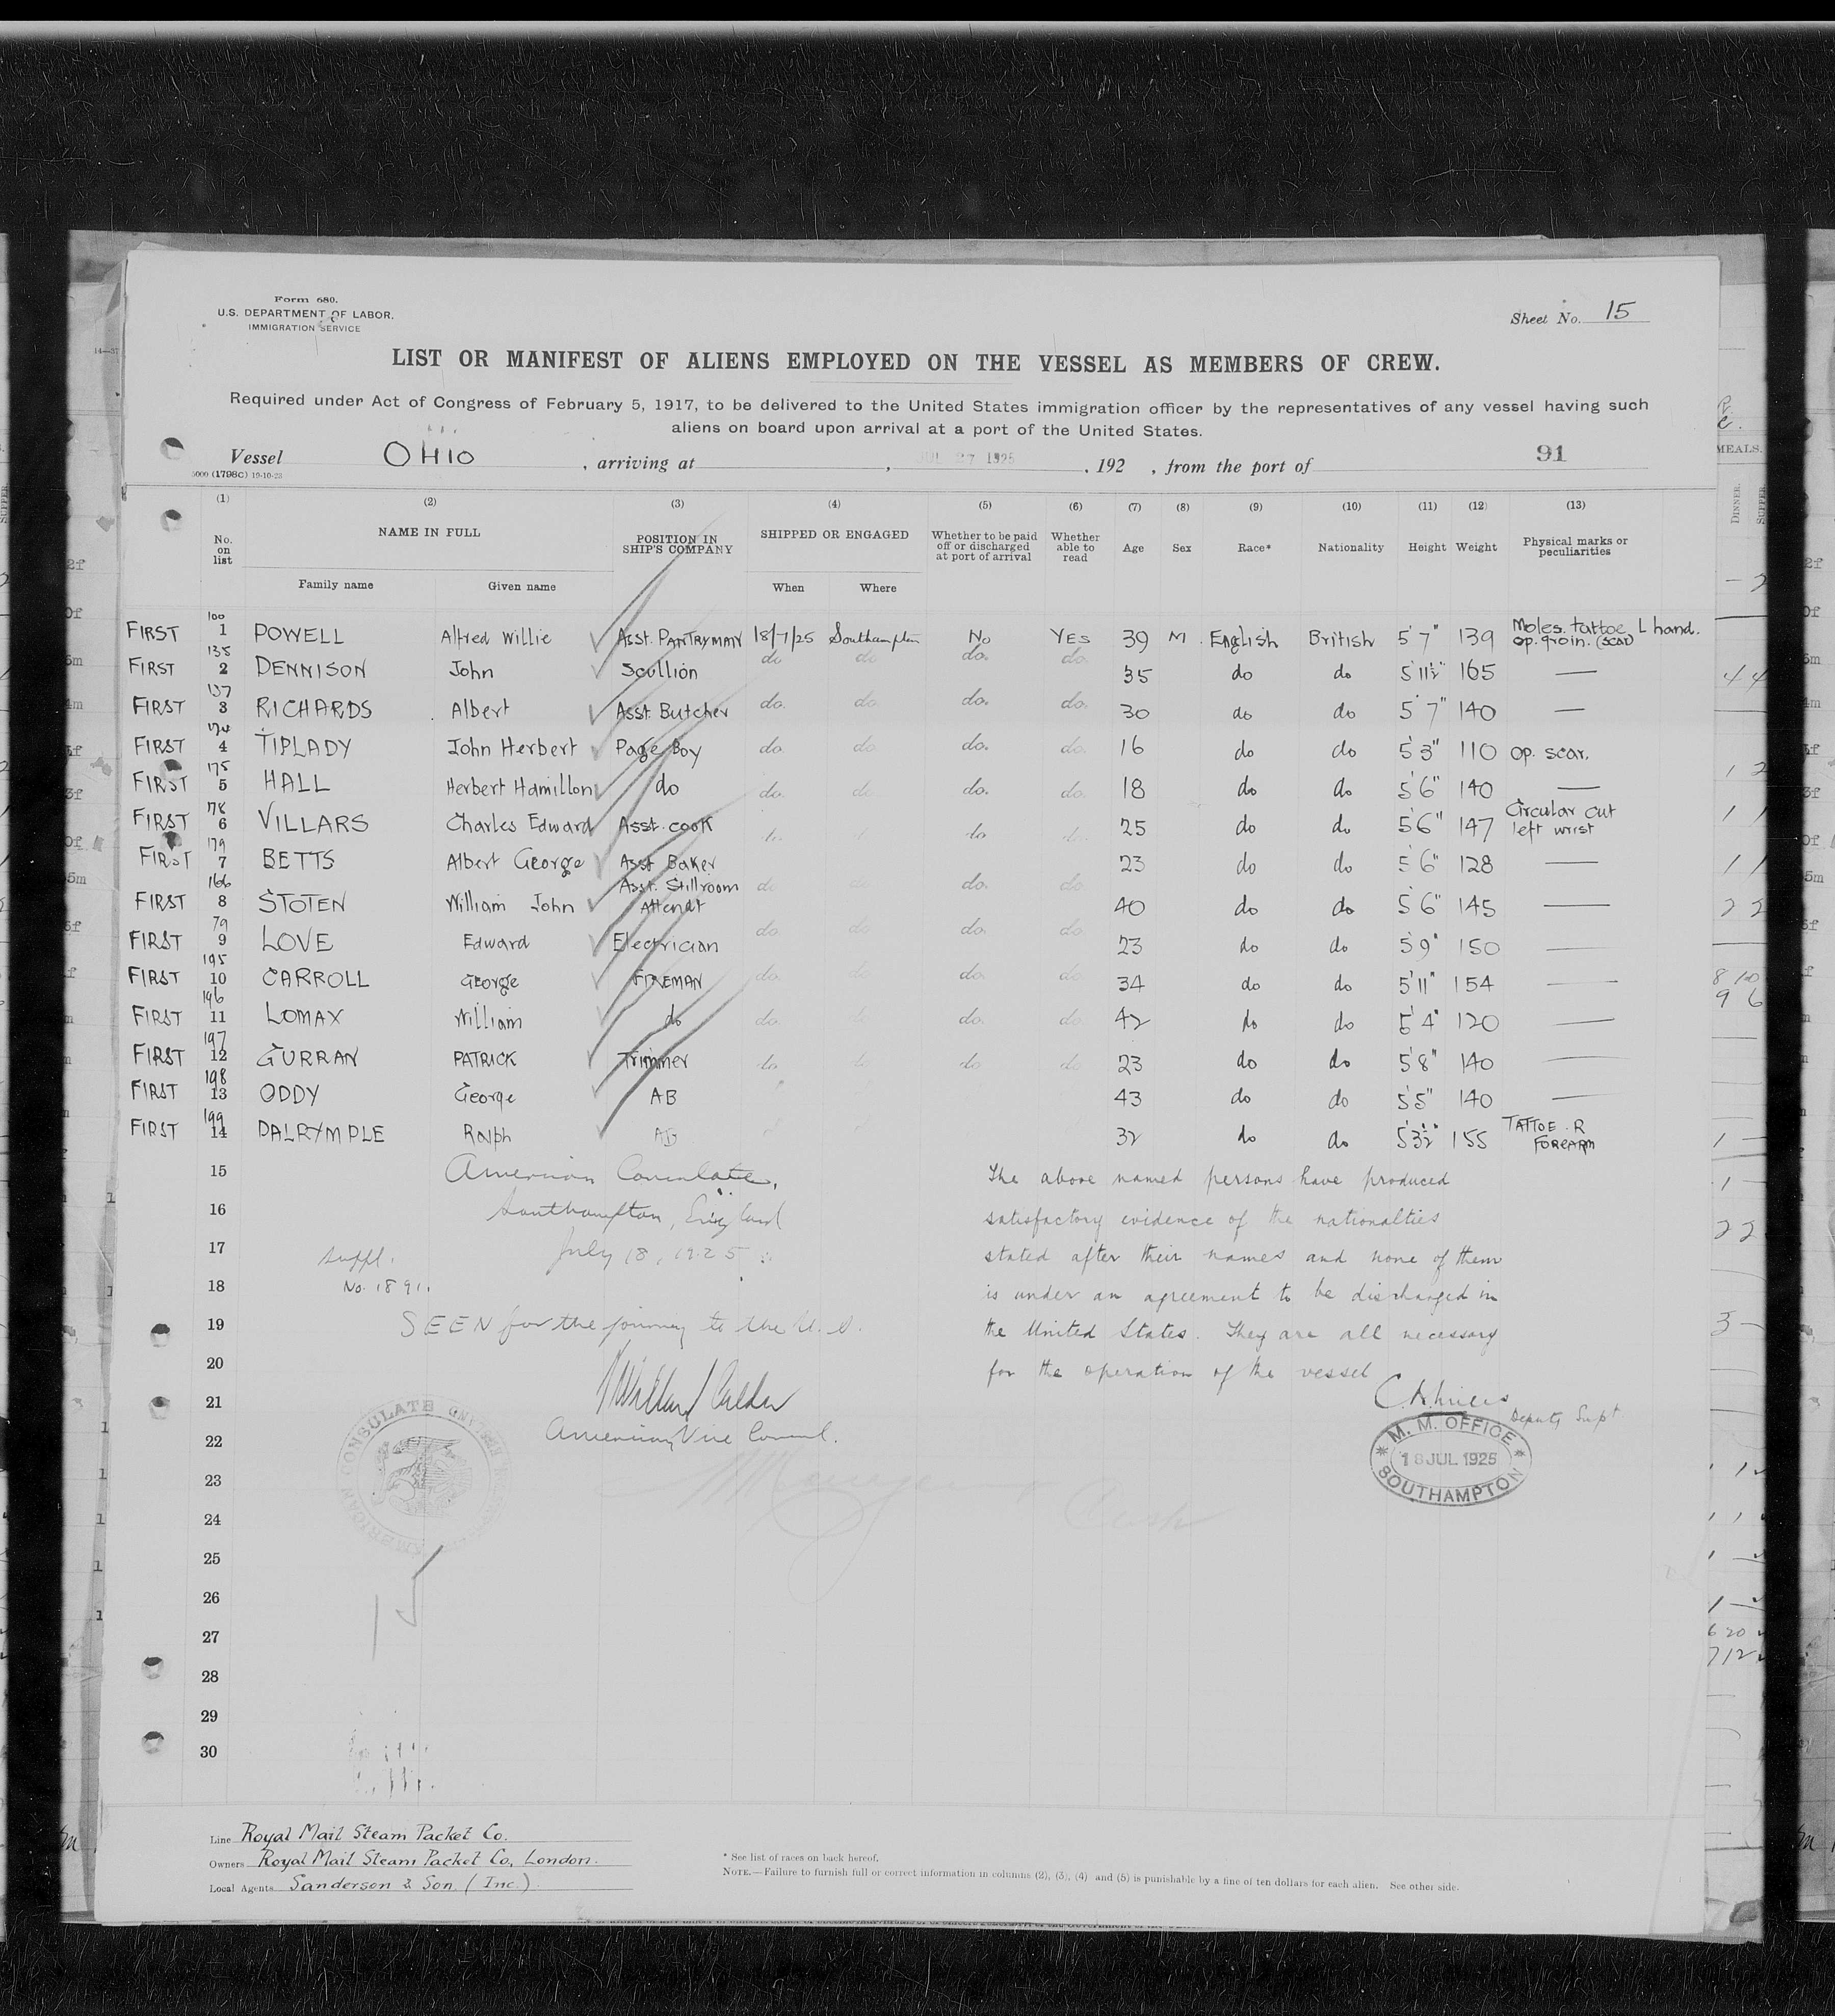 Form 680.
U.S. DEPARTMENT OF LABOR.
IMMIGRATION SERVICE
Sheet No. 15
LIST OR MANIFEST OF ALIENS EMPLOYED ON THE VESSEL AS MEMBERS OF CREW.
Required under Act of Congress of February 5, 1917, to be delivered to the United States immigration officer by the representatives of any vessel having such
aliens on board upon arrival at a port of the United States.
Vessel OHIO , arriving at , JUL 27 1925 , 192 , from the port of 91
5000 (1798C) 19-10-23
(1) (2) (3) (4) (5) (6) (7) (8) (9) (10) (11) (12) (13)
No. on list NAME IN FULL POSITION IN SHIP'S COMPANY SHIPPED OR ENGAGED Whether to be paid off or discharged at port of arrival Whether able to read Age Sex Race* Nationality Height Weight Physical marks or peculiarities
Family name Given name When Where
FIRST 100 1 POWELL Alfred Willie Asst. PANTRYMAN 18/7/25 Southampton No YES 39 M. English British 5'7" 139 Moles. tattoe L hand. op. groin. (scar)
FIRST 135 2 DENNISON John Scullion do do do. do. 35 do do 5'11½" 165 —
FIRST 137 3 RICHARDS Albert Asst. Butcher do. do. do. do. 30 do do 5'7" 140 —
FIRST 174 4 TIPLADY John Herbert Page Boy do. do. do. do. 16 do do 5'3" 110 op. scar.
FIRST 175 5 HALL Herbert Hamillon do do. do. do. do. 18 do do 5'6" 140 —
FIRST 178 6 VILLARS Charles Edward Asst. cook do do 25 do do 5'6" 147 Circular cut left wrist
FIRST 179 7 BETTS Albert George Asst Baker 23 do do 5'6" 128 —
FIRST 166 8 STOTEN William John Asst. Stillroom Attendt do do do. do 40 do do 5'6" 145 —
FIRST 79 9 LOVE Edward Electrician do do do. do 23 do do 5'9" 150 —
FIRST 195 10 CARROLL George FIREMAN do. do do. do 34 do do 5'11" 154 —
FIRST 196 11 LOMAX William do do. do do. do. 42 do do 5'4" 120 —
FIRST 197 12 GURRAN PATRICK Trimmer do do do do 23 do do 5'8" 140 —
FIRST 198 13 ODDY George AB 43 do do 5'5" 140 —
FIRST 199 14 DALRYMPLE Ralph AB 32 do do 5'3½" 155 TATTOE. R FOREARM
15 American Consulate, The above named persons have produced
16 Southampton, England satisfactory evidence of the nationalties
17 Suppl. July 18, 1925 stated after their names and none of them
18 No. 1891. is under an agreement to be discharged in
19 SEEN for the journey to the U.S. the United States. They are all necessary
20 for the operation of the vessel
21 Deputy Supt
22 American Vice Consul.
M. M. OFFICE
18 JUL 1925
SOUTHAMPTON
AMERICAN CONSULATE
23
24
25
26
27
28
29
30
Line Royal Mail Steam Packet Co.
Owners Royal Mail Steam Packet Co, London.
Local Agents Sanderson & Son. (Inc.)
* See list of races on back hereof.
NOTE.—Failure to furnish full or correct information in columns (2), (3), (4) and (5) is punishable by a fine of ten dollars for each alien. See other side.
MEALS.
DINNER.
SUPPER.